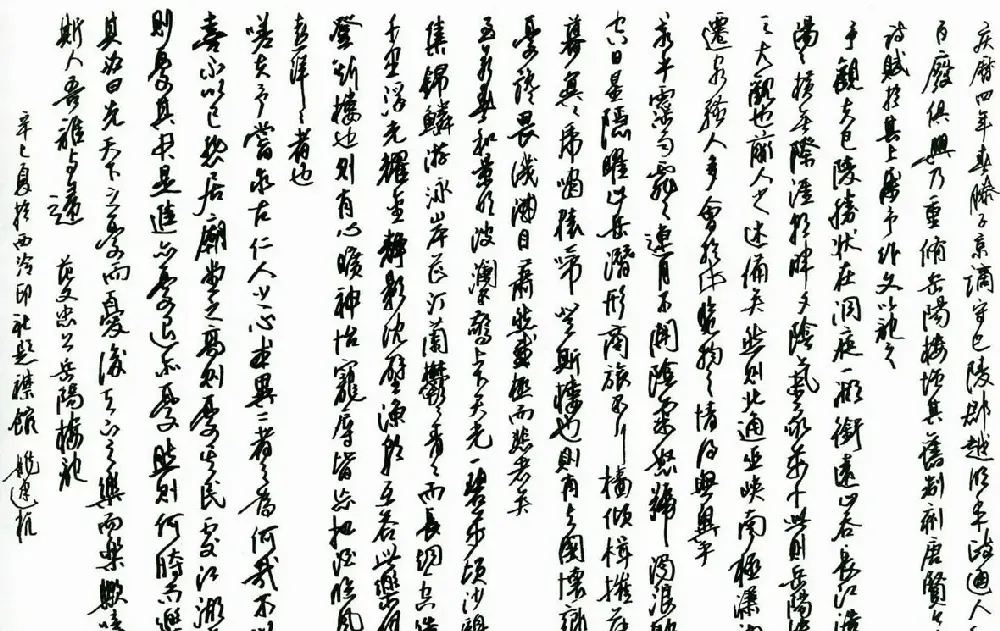 庆历四年春滕子京谪守巴陵郡越明年政通人
百废俱兴乃重修岳阳楼增其舊制刻唐贤今
诗赋於其上属予作文以记之
予觀夫巴陵勝状在洞庭一湖衔遠山吞長江浩
湯湯横無際涯朝暉夕陰氣象萬千此则岳陽
之大觀也前人之述備矣然则北通巫峡南極潇
遷客骚人多會於此覽物之情得無異乎
若夫霪雨霏霏連月不開陰風怒號濁浪
空日星隱曜山岳潛形商旅不行檣傾楫摧
暮冥冥虎啸猿啼登斯樓也则有去國懷鄉
憂讒畏譏滿目蕭然感極而悲者矣
至若春和景明波瀾不驚上下天光一碧万顷沙鷗
集錦鱗游泳岸芷汀蘭郁郁青青而長烟一空皓
千里浮光耀金靜影沈璧漁歌互答此樂何
登斯樓也则有心曠神怡寵辱皆忘把酒臨風
喜洋洋者也
嗟夫予嘗求古仁人之心或異二者之為何哉不以
喜不以己悲居廟堂之高则憂其民處江湖
则憂其君是進亦憂退亦憂然则何時而樂
其必曰先天下之憂而憂後天下之樂而樂歟噫
斯人吾誰与歸 范文忠公岳陽樓記
辛巳夏於西泠印社題襟館